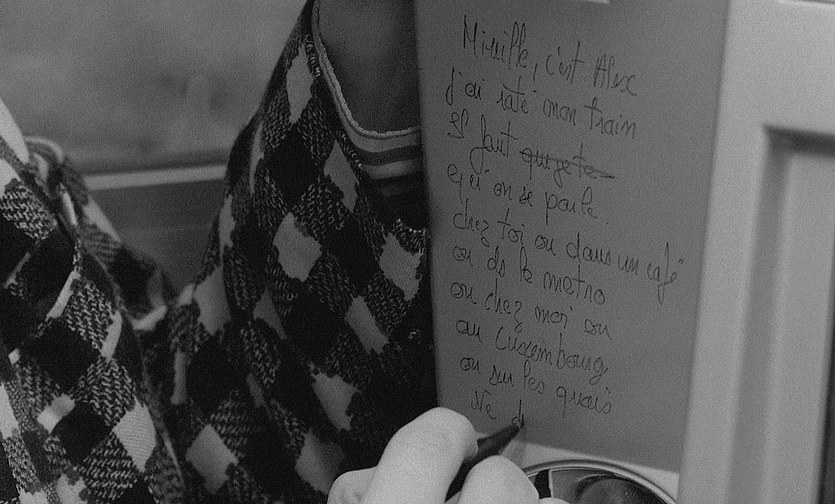 Mireille, c'est Alex
j'ai raté mon train
Il faut
qu'on se parle.
chez toi ou dans un café
ou ds le metro
ou chez moi ou
au Luxembourg
ou sur les quais
Ne d